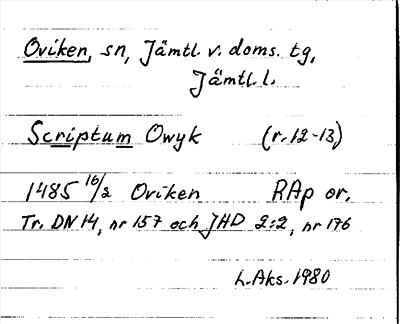 Oviken, sn, Jämtl. v. doms. tg,
Jämtl. l.
Scriptum Owyk (r. 12-13)
1485 16/2 Oviken RAp or.
Tr. DN 14, nr 157 och JHD 2:2, nr 176
L. Aks. 1980